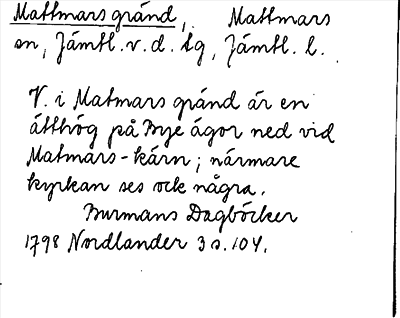 Mattmars gränd, Mattmars
sn, Jämtl. v. d. tg, Jämtl. l.
V. i Matmars gränd är en
ätthög på Bye ägor ned vid
Matmars-kärn; närmare
kyrkan ses ock några.
Burmans Dagböcker
1798 Nordlander 3 s. 104.